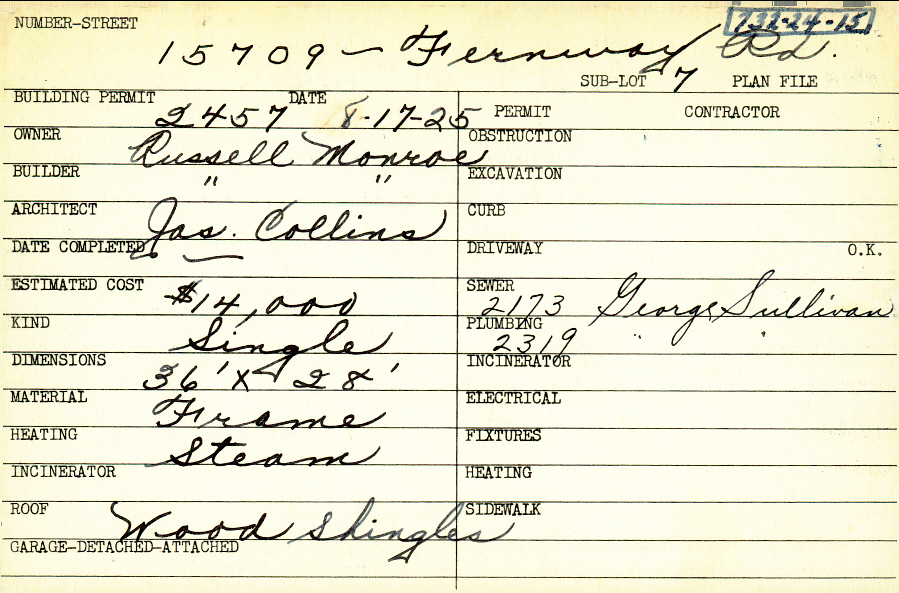 NUMBER-STREET 732-24-15
15709 - Fernway Rd.
SUB-LOT 7 PLAN FILE
BUILDING PERMIT 2457 DATE 8-17-25 PERMIT CONTRACTOR
OWNER Russell Monroe OBSTRUCTION
BUILDER " " EXCAVATION
ARCHITECT Jas. Collins CURB
DATE COMPLETED — DRIVEWAY O.K.
ESTIMATED COST $14,000 SEWER 2173 George Sullivan
KIND Single PLUMBING 2319 " "
DIMENSIONS 36' X 28' INCINERATOR
MATERIAL Frame ELECTRICAL
HEATING Steam FIXTURES
INCINERATOR HEATING
ROOF Wood Shingles SIDEWALK
GARAGE-DETACHED-ATTACHED